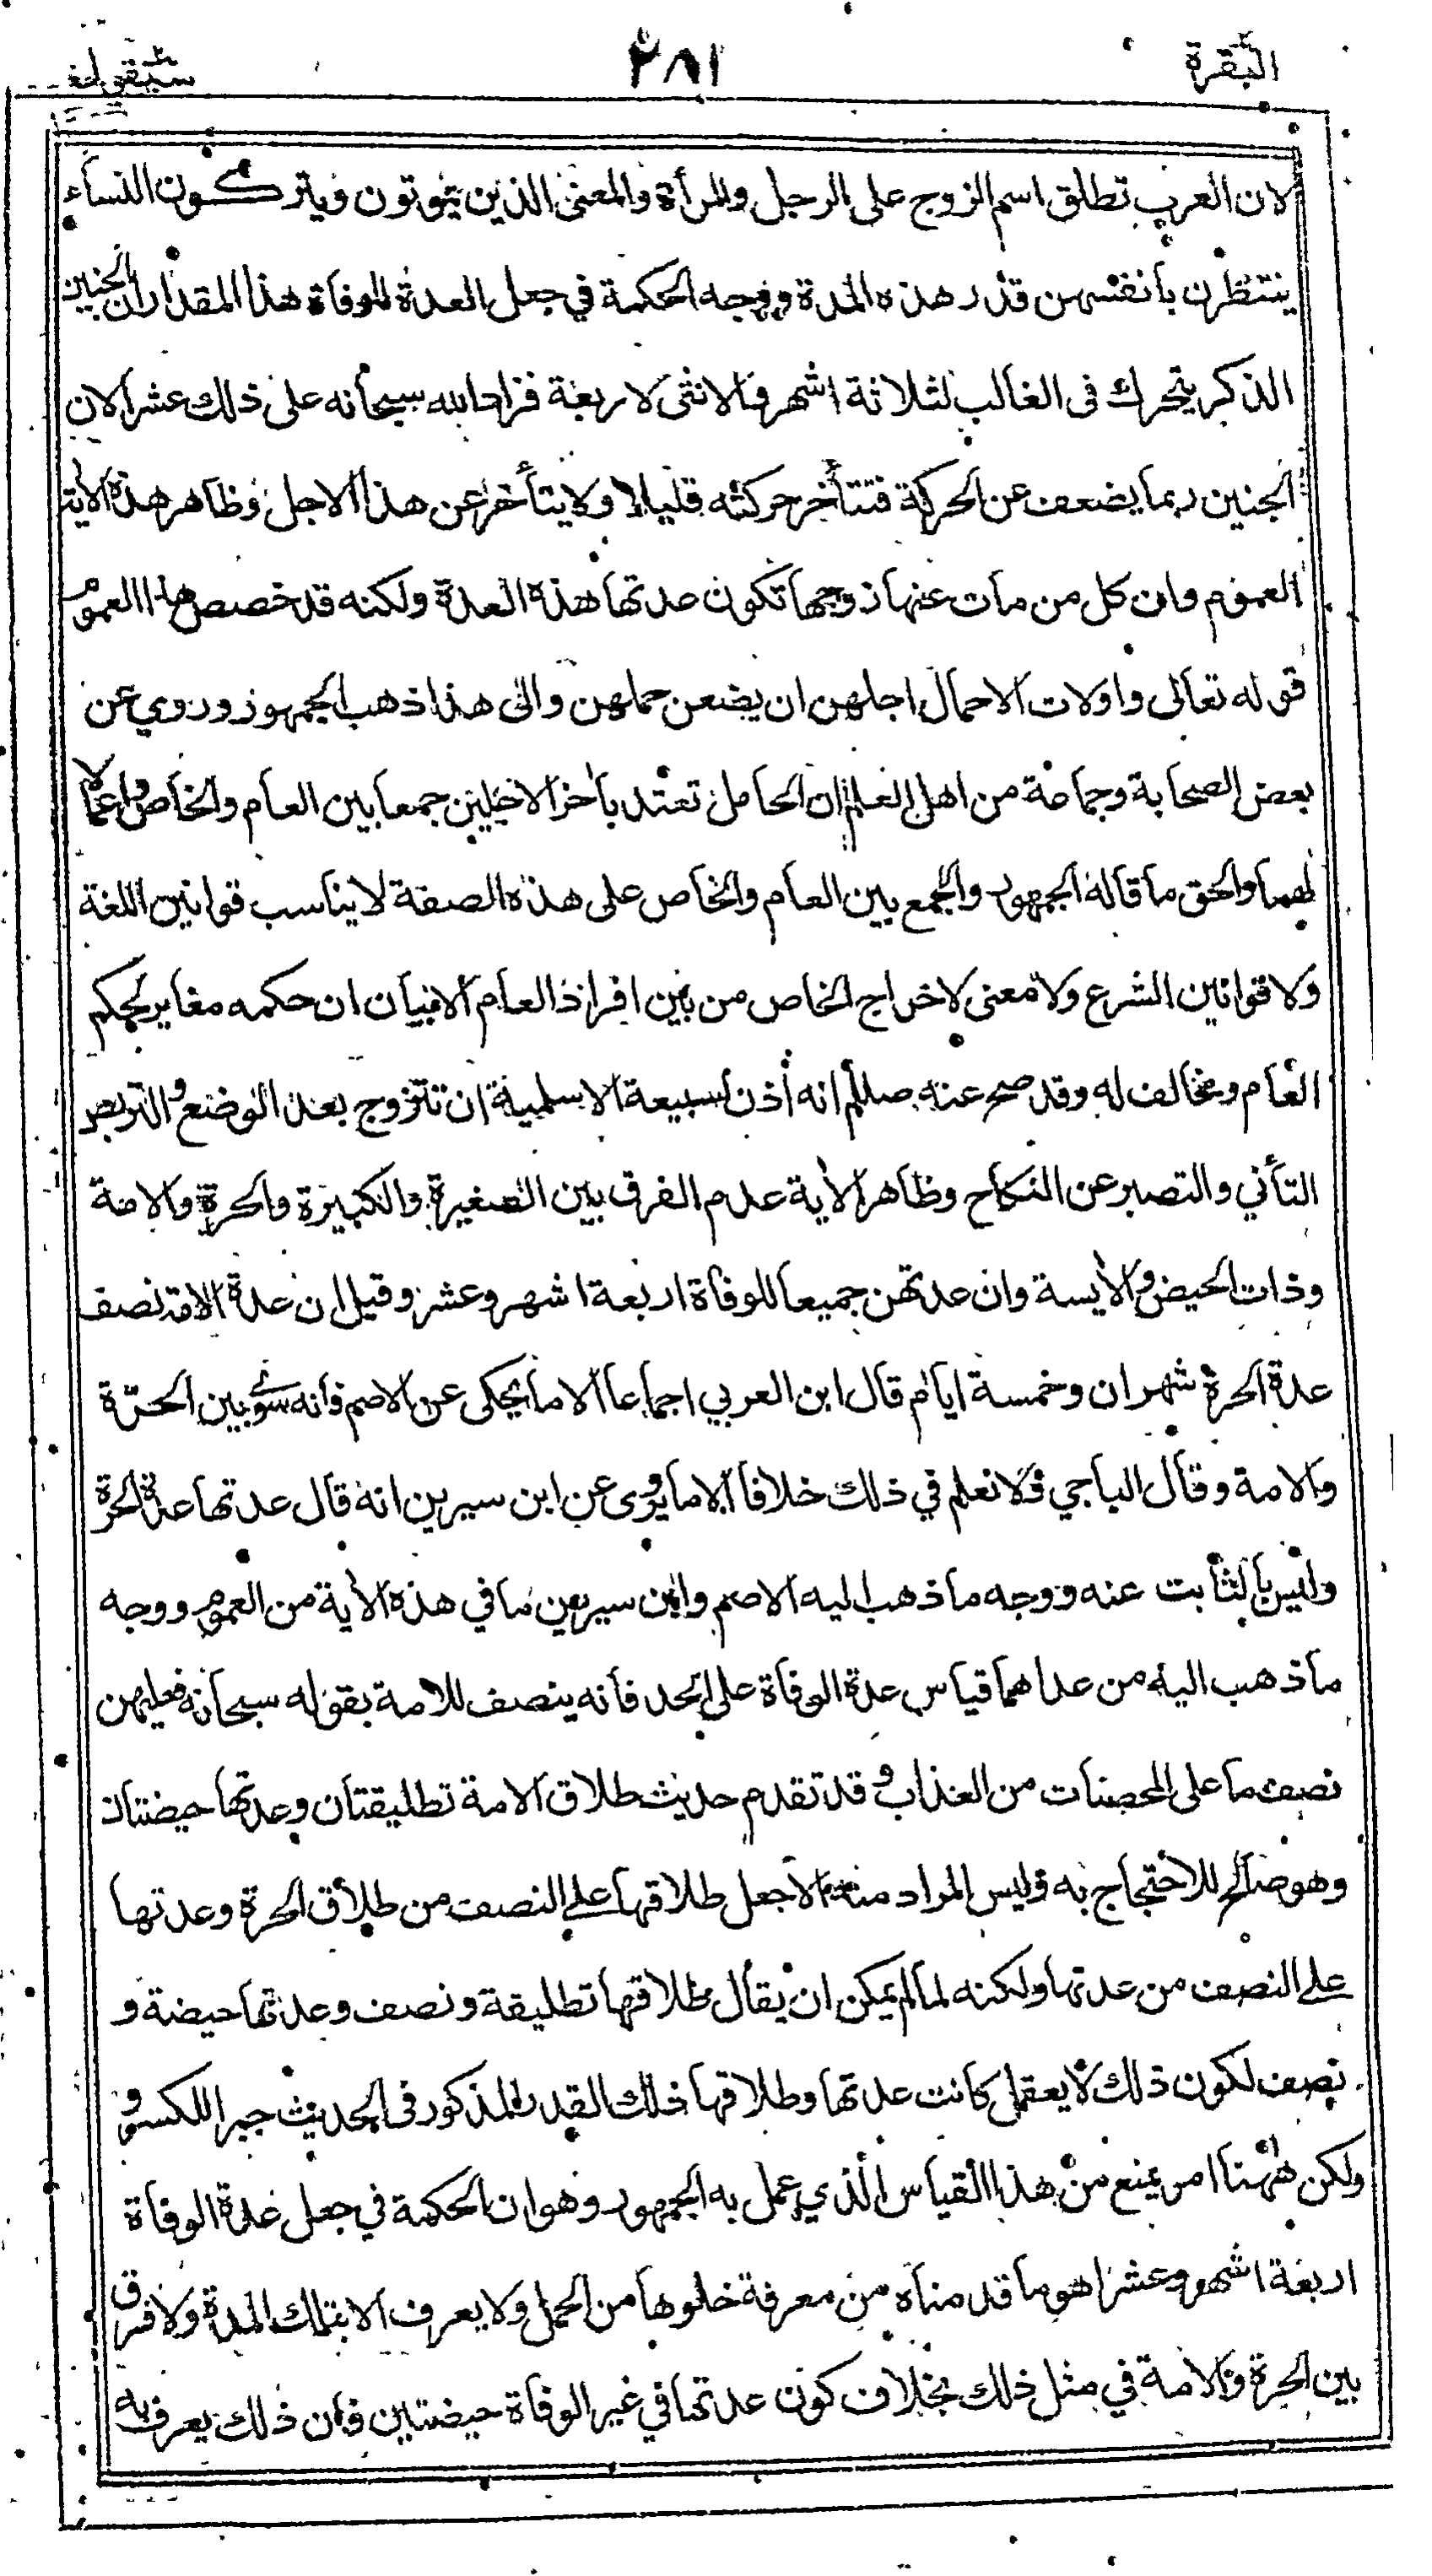 البقرة ٢٨١ سيقول
لان العرب تطلق اسم الزوج على الرجل والمرأة والمعنى الذين يموتون ويتركون النساء
ينتظرن بأنفسهن قدر هذه المدة ووجه الحكمة في جعل العدة للوفاة هذا المقدار ان الجنين
الذكر يتحرك في الغالب لثلاثة اشهر والانثى لاربعة فزاد الله سبحانه على ذلك عشرا لان
الجنين ربما يضعف عن الحركة فتتأخر حركته قليلا ولا يتأخر عن هذا الاجل وظاهر هذه الآية
العموم وان كل من مات عنها زوجها تكون عدتها هذه العدة ولكنه قد خصص هذا العموم
قوله تعالى واولات الاحمال اجلهن ان يضعن حملهن والى هذا ذهب الجمهور وروي عن
بعض الصحابة وجماعة من اهل العلم ان الحامل تعتد بآخر الاجلين جمعا بين العام والخاص واعمالا
لهما والحق ما قاله الجمهور والجمع بين العام والخاص على هذه الصفة لا يناسب قوانين اللغة
ولا قوانين الشرع ولا معنى لاخراج الخاص من بين افراد العام الا بيان ان حكمه مغاير لحكم
العام ومخالف له وقد صح عنه صللم انه أذن لسبيعة الاسلمية ان تتزوج بعد الوضع والتربص
التأني والتصبر عن النكاح وظاهر الآية عدم الفرق بين الصغيرة والكبيرة والحرة والامة
وذات الحيض والآيسة وان عدتهن جميعا للوفاة اربعة اشهر وعشر وقيل ان عدة الامة نصف
عدة الحرة شهران وخمسة ايام قال ابن العربي اجماعا الا ما يحكى عن الاصم فانه سوّى بين الحرّة
والامة وقال الباجي ولا نعلم في ذلك خلافا الا ما يروى عن ابن سيرين انه قال عدتها عدة الحرة
وليس بالثابت عنه ووجه ما ذهب اليه الاصم وابن سيرين ما في هذه الآية من العموم ووجه
ما ذهب اليه من عداهما قياس عدة الوفاة على الحد فانه ينصف للامة بقوله سبحانه فعليهن
نصف ما على المحصنات من العذاب وقد تقدم حديث طلاق الامة تطليقتان وعدتها حيضتان
وهو صالح للاحتجاج به وليس المراد منه الا جعل طلاقها على النصف من طلاق الحرة وعدتها
على النصف من عدتها ولكنه لما لم يمكن ان يقال طلاقها تطليقة ونصف وعدتها حيضة و
نصف لكون ذلك لا يعقل كانت عدتها وطلاقها ذلك القدر المذكور في الحديث جبرا للكسر
ولكن ههنا امر يمنع من هذا القياس الذي عمل به الجمهور وهو ان الحكمة في جعل عدة الوفاة
اربعة اشهر وعشرا هو ما قدمناه من معرفة خلوها من الحمل ولا يعرف الا بتلك المدة ولا فرق
بين الحرة والامة في مثل ذلك بخلاف كون عدتها في غير الوفاة حيضتين فان ذلك يعرف به